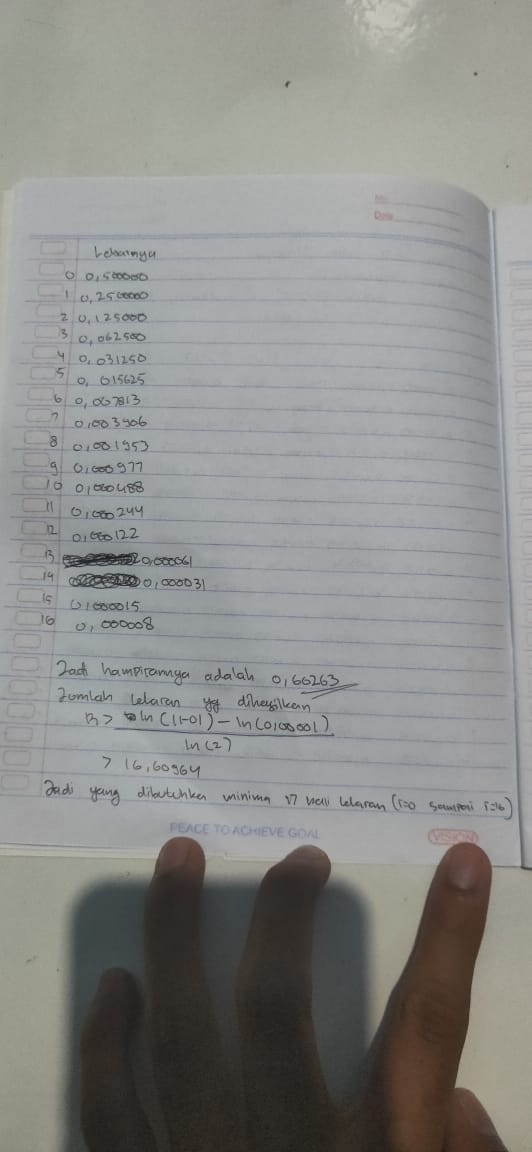 No.
Date
Lebarnya
0 0,500000
1 0,2500000
2 0,125000
3 0,062500
4 0,031250
5 0, 015625
6 0,007813
7 0,003906
8 0,001953
9 0,000977
10 0,000488
11 0,000244
12 0,000122
13 0,000061
14 0,000031
15 0,000015
16 0,000008
Jadi hampirannya adalah 0,60263
Jumlah lelaran yg dihasilkan
R > ln (11-01) - ln (0,00001)
ln (2)
> 16,60964
Jadi yang dibutuhkan minima 17 kali lelaran (i=0 sampai i=16)
PEACE TO ACHIEVE GOAL
VISION